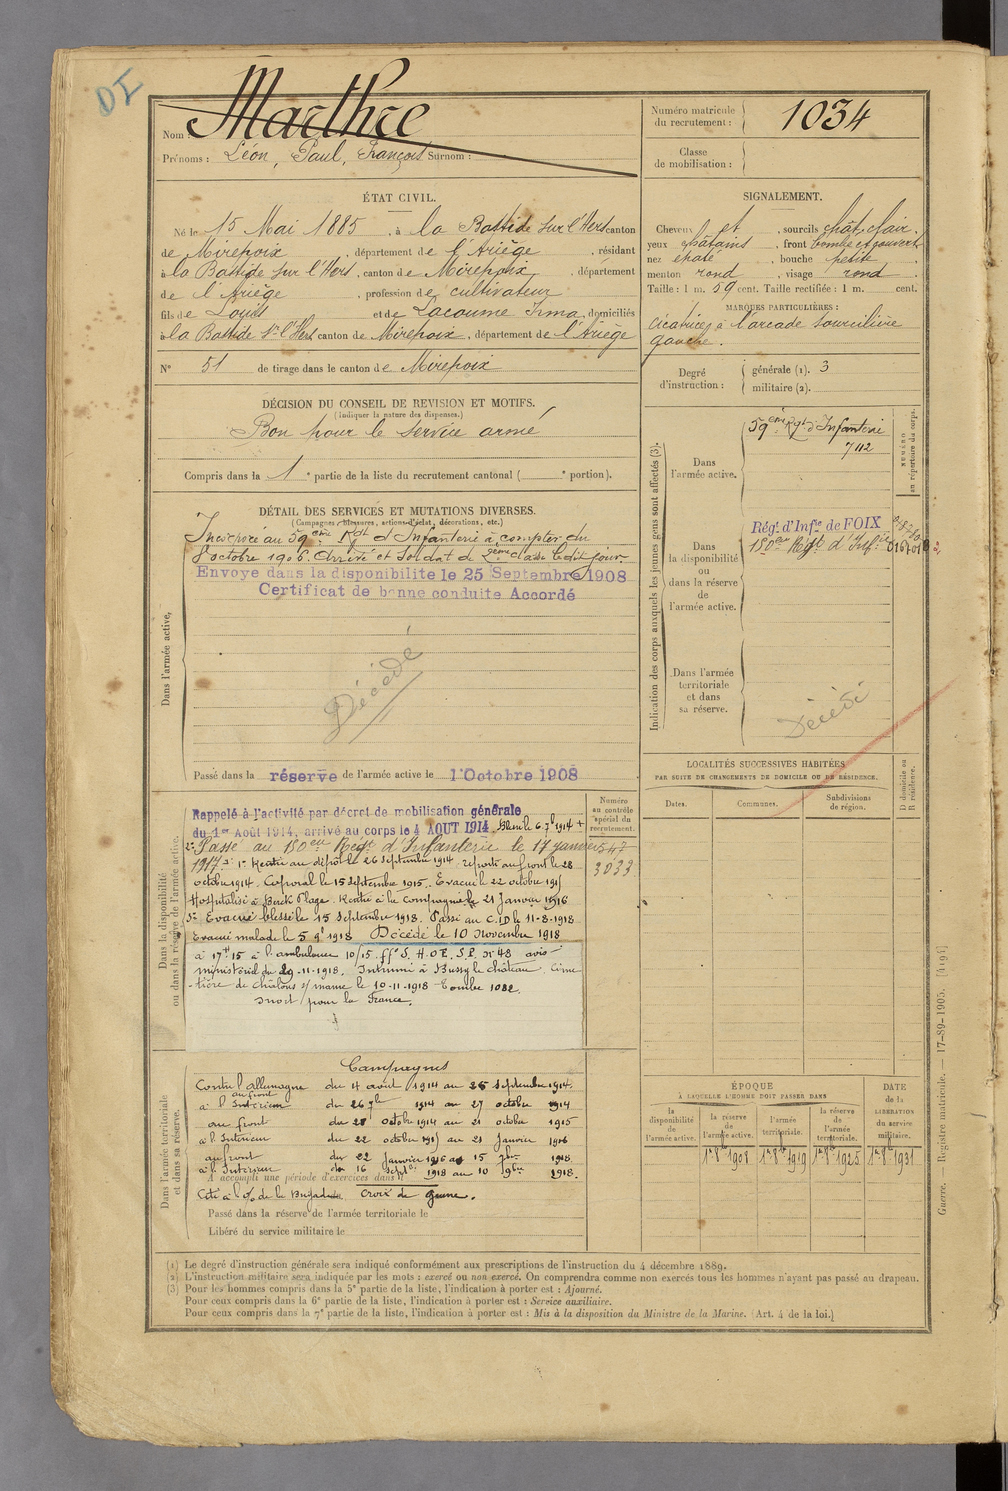 DI
Nom : Marthre
Prénoms : Léon, Paul, François Surnom :
Numéro matricule du recrutement : 1034
Classe de mobilisation :
ÉTAT CIVIL.
Né le 15 Mai 1885, à la Bastide sur l'Hers canton
de Mirepoix, département de l'Ariège, résidant
à la Bastide sur l'Hers, canton de Mirepoix, département
de l'Ariège, profession de cultivateur
fils de Louis et de Lacoume Irma, domiciliés
à la Bastide sr l'Hers canton de Mirepoix, département de l'Ariège
N° 51 de tirage dans le canton de Mirepoix
SIGNALEMENT.
Cheveux et, sourcils chât. clair.
yeux châtains, front bombé et couvert
nez épaté, bouche petite.
menton rond, visage rond
Taille : 1 m. 59 cent. Taille rectifiée : 1 m. cent.
MARQUES PARTICULIÈRES :
Cicatrices à l'arcade sourcilière
gauche.
Degré d'instruction : générale (1). 3
militaire (2).
DÉCISION DU CONSEIL DE REVISION ET MOTIFS.
(Indiquer la nature des dispenses.)
Bon pour le service armé
Compris dans la 1e partie de la liste du recrutement cantonal ( e portion).
DÉTAIL DES SERVICES ET MUTATIONS DIVERSES.
(Campagnes, blessures, actions d'éclat, décorations, etc.)
Dans l'armée active,
Incorporé au 59ème Rgt d'Infanterie à compter du
8 octobre 1906. Arrivé et soldat de 2ème classe le dit jour.
Envoye dans la disponibilite le 25 Septembre 1908
Certificat de bonne conduite Accordé
Décédé
Passé dans la réserve de l'armée active le 1 Octobre 1908
Indication des corps auxquels les jeunes gens sont affectés (3).
NUMÉRO au répertoire du corps.
Dans l'armée active.
59ème Rgt d'Infanterie
7112
Dans la disponibilité ou dans la réserve de l'armée active.
Régt d'Infie de FOIX
180eme Régt d'Infie
Dans l'armée territoriale et dans sa réserve.
Décédé
LOCALITÉS SUCCESSIVES HABITÉES
PAR SUITE DE CHANGEMENTS DE DOMICILE OU DE RÉSIDENCE.
D domicile ou R résidence.
Dates. Communes. Subdivisions de région.
Dans la disponibilité ou dans la réserve de l'armée active.
Numéro au contrôle spécial du recrutement.
3033
Rappelé à l'activité par décret de mobilisation générale
du 1er Août 1914, arrivé au corps le 4 AOUT 1914. Blessé le 6 7bre 1914 +
2° Passé au 180eme Régt d'Infanterie le 17 janvier
1917. 1° Rentré au dépôt le 26 septembre 1914. reparti au front le 28
octobre 1914. Caporal le 15 septembre 1915. Evacué le 22 octobre 1915
Hospitalisé à Berck Plage. Rentré à la compagnie le 21 Janvier 1916
3° Evacué blessé le 15 septembre 1918. Passé au C.I.D le 11-8-1918
Evacué malade le 5 9bre 1918 Décédé le 10 novembre 1918
à 17h 15 à l'ambulance 10/15 ffon S. H.O.E. S.P. n° 48 avis
ministériel du 29-11-1918. Inhumé à Bussy le château. Cime
-tière de Châlons s/marne le 10-11-1918 Tombe 1082.
Mort pour la France.
Dans l'armée territoriale et dans sa réserve.
Campagnes
Contre l'Allemagne du 4 août 1914 au 25 septembre 1914.
à l'Intérieur du 26 7bre 1914 au 27 octobre 1914
au front du 28 octobre 1914 au 21 octobre 1915
à l'Intérieur du 22 octobre 1915 au 21 Janvier 1916
au front du 22 Janvier 1916 au 15 7bre 1918.
à l'Intérieur du 16 Septbre 1918 au 10 9bre 1918.
A accompli une période d'exercices dans l
Cité à l'o/ de la Brigade. Croix de guerre.
Passé dans la réserve de l'armée territoriale le
Libéré du service militaire le
ÉPOQUE
À LAQUELLE L'HOMME DOIT PASSER DANS
DATE de la LIBÉRATION du service militaire.
la disponibilité de l'armée active. la réserve de l'armée active. l'armée territoriale. la réserve de l'armée territoriale.
1er 8bre 1908 1er 8bre 1919 1er 8bre 1925 1er 8bre 1931
Guerre. — Registre matricule. — 17-89-1905. [1191]
(1) Le degré d'instruction générale sera indiqué conformément aux prescriptions de l'instruction du 4 décembre 1889.
(2) L'instruction militaire sera indiquée par les mots : exercé ou non exercé. On comprendra comme non exercés tous les hommes n'ayant pas passé au drapeau.
(3) Pour les hommes compris dans la 5e partie de la liste, l'indication à porter est : Ajourné.
Pour ceux compris dans la 6e partie de la liste, l'indication à porter est : Service auxiliaire.
Pour ceux compris dans la 7e partie de la liste, l'indication à porter est : Mis à la disposition du Ministre de la Marine. (Art. 4 de la loi.)